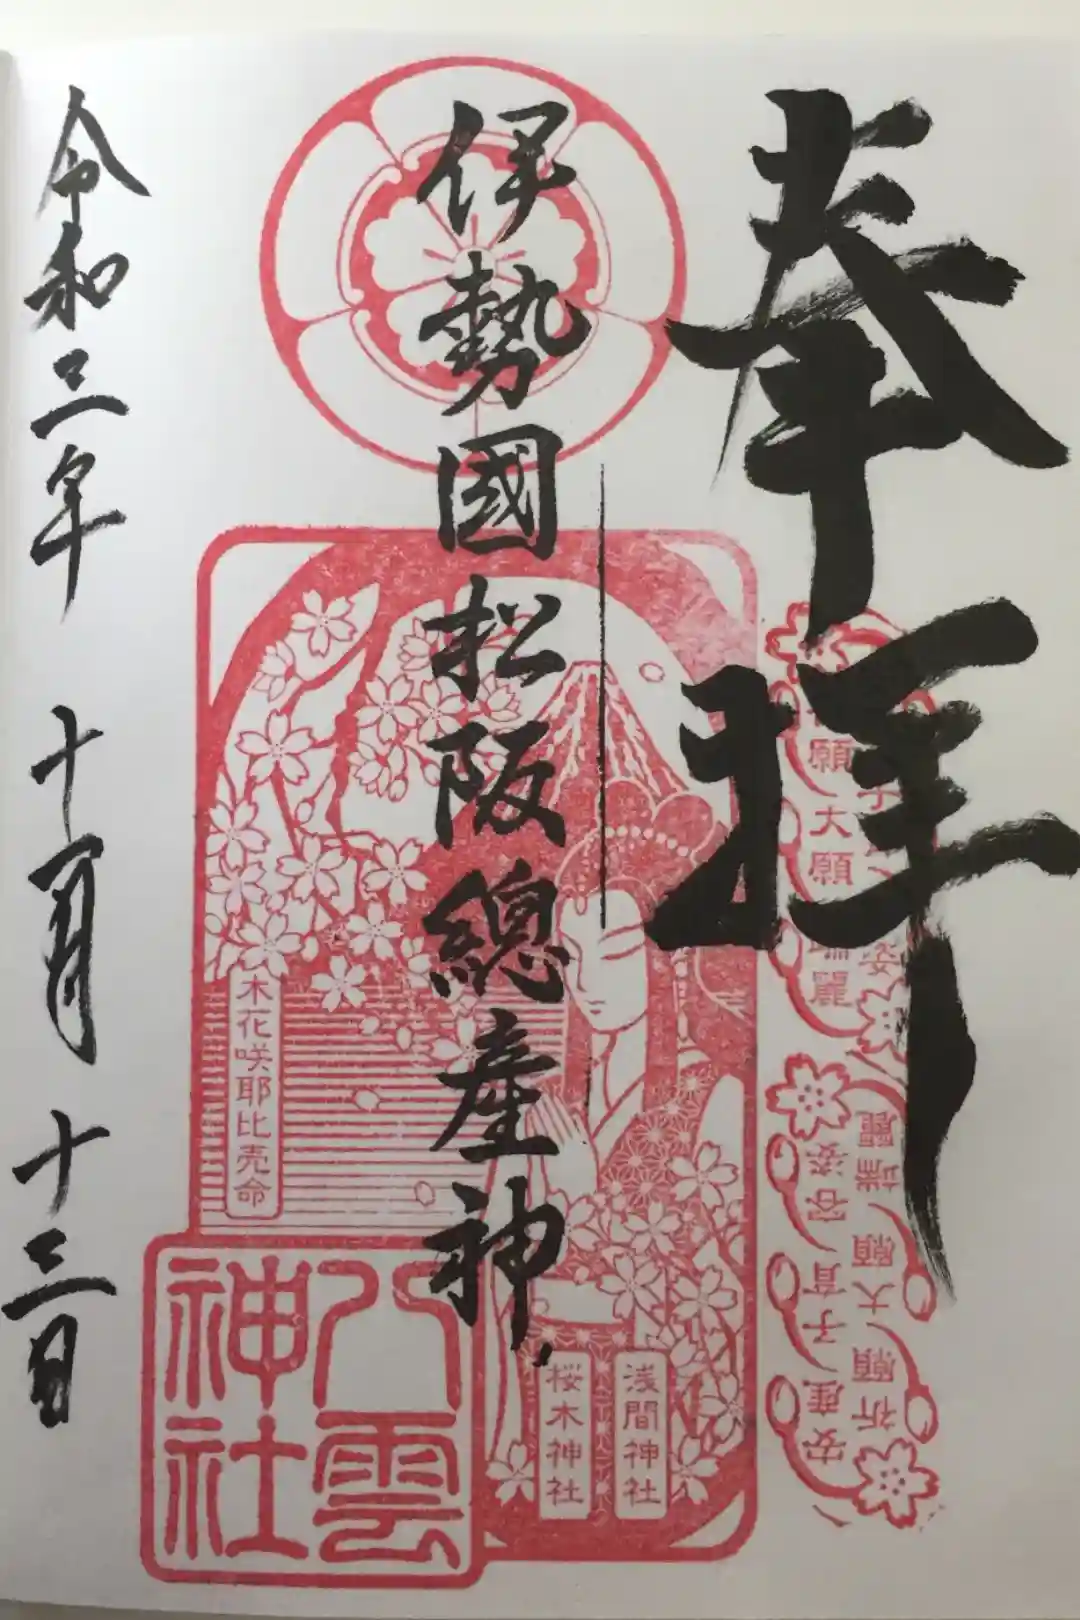 奉拝
伊勢國松阪總産神
令和三年 十一月 十三日
木花咲耶比売命
浅間神社
桜木神社
八雲神社
安産 子育 容姿
祈願 大願 端麗
願 大願
麗
姿